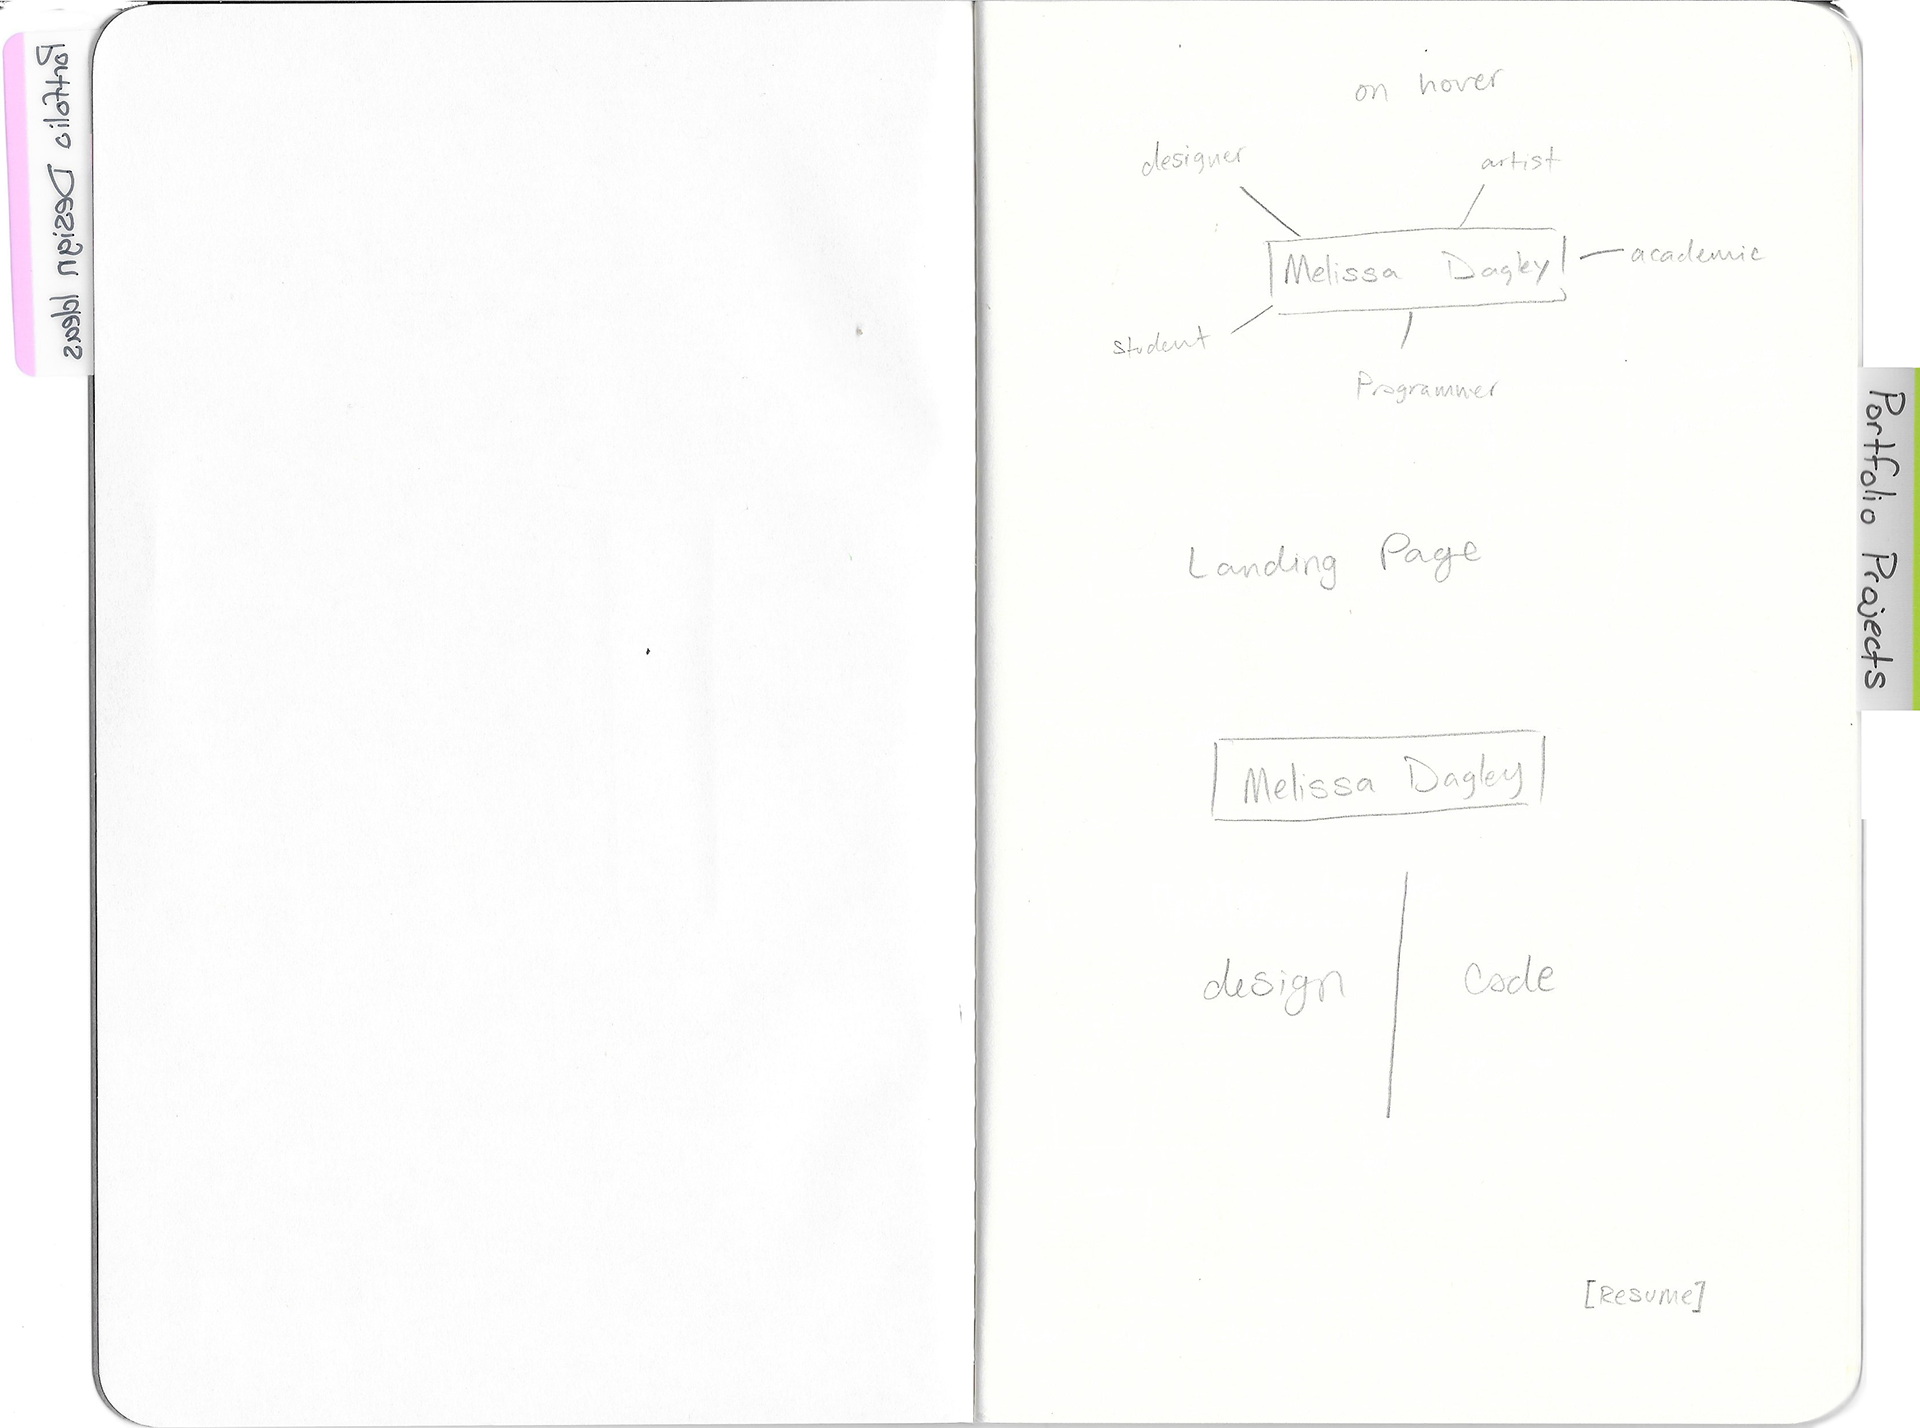 Portfolio Design Ideas
on hover
designer
artist
Melissa Dagley
academic
student
Programmer
Landing Page
Melissa Dagley
design
code
[Resume]
Portfolio Projects